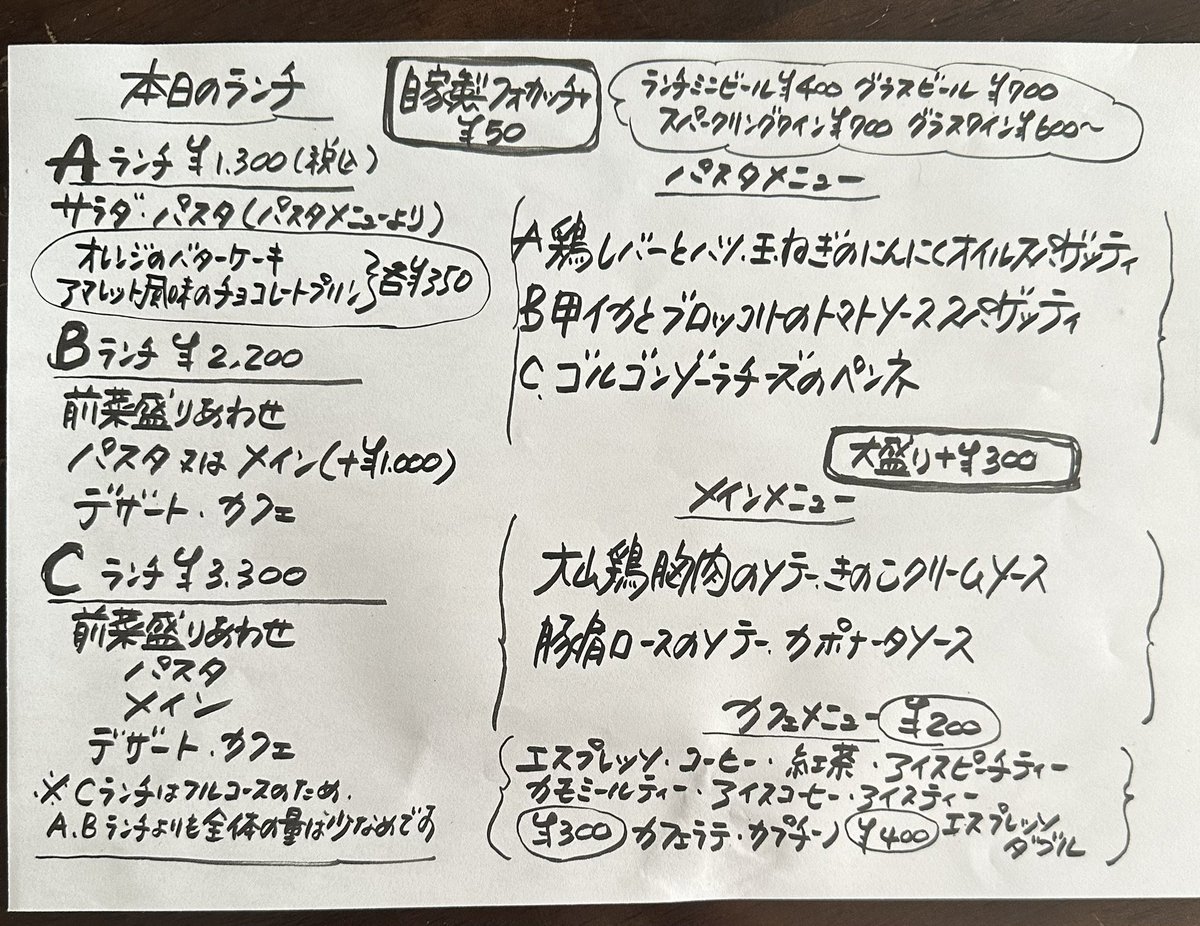 本日のランチ
Aランチ ¥1.300(税込)
サラダ・パスタ(パスタメニューより)
オレンジのバターケーキ
アマレット風味のチョコレートプリン}各¥350
Bランチ ¥2,200
前菜盛りあわせ
パスタ又はメイン(+¥1.000)
デザート.カフェ
Cランチ ¥3.300
前菜盛りあわせ
パスタ
メイン
デザート.カフェ
※Cランチはフルコースのため.
A.Bランチよりも全体の量は少なめです
自家製フォカッチャ
¥50
ランチミニビール¥400 グラスビール ¥700
スパークリングワイン¥700 グラスワイン¥600〜
パスタメニュー
A鶏レバーとハツ.玉ねぎのにんにくオイルスパゲッティ
B甲イカとブロッコリーのトマトソーススパゲッティ
C.ゴルゴンゾーラチーズのペンネ
大盛り+¥300
メインメニュー
大山鶏胸肉のソテー.きのこクリームソース
豚肩ロースのソテー.カポナータソース
カフェメニュー ¥200
エスプレッソ・コーヒー・紅茶・アイスピーチティー
カモミールティー・アイスコーヒー・アイスティー
¥300 カフェラテ・カプチーノ ¥400 エスプレッソ
ダブル